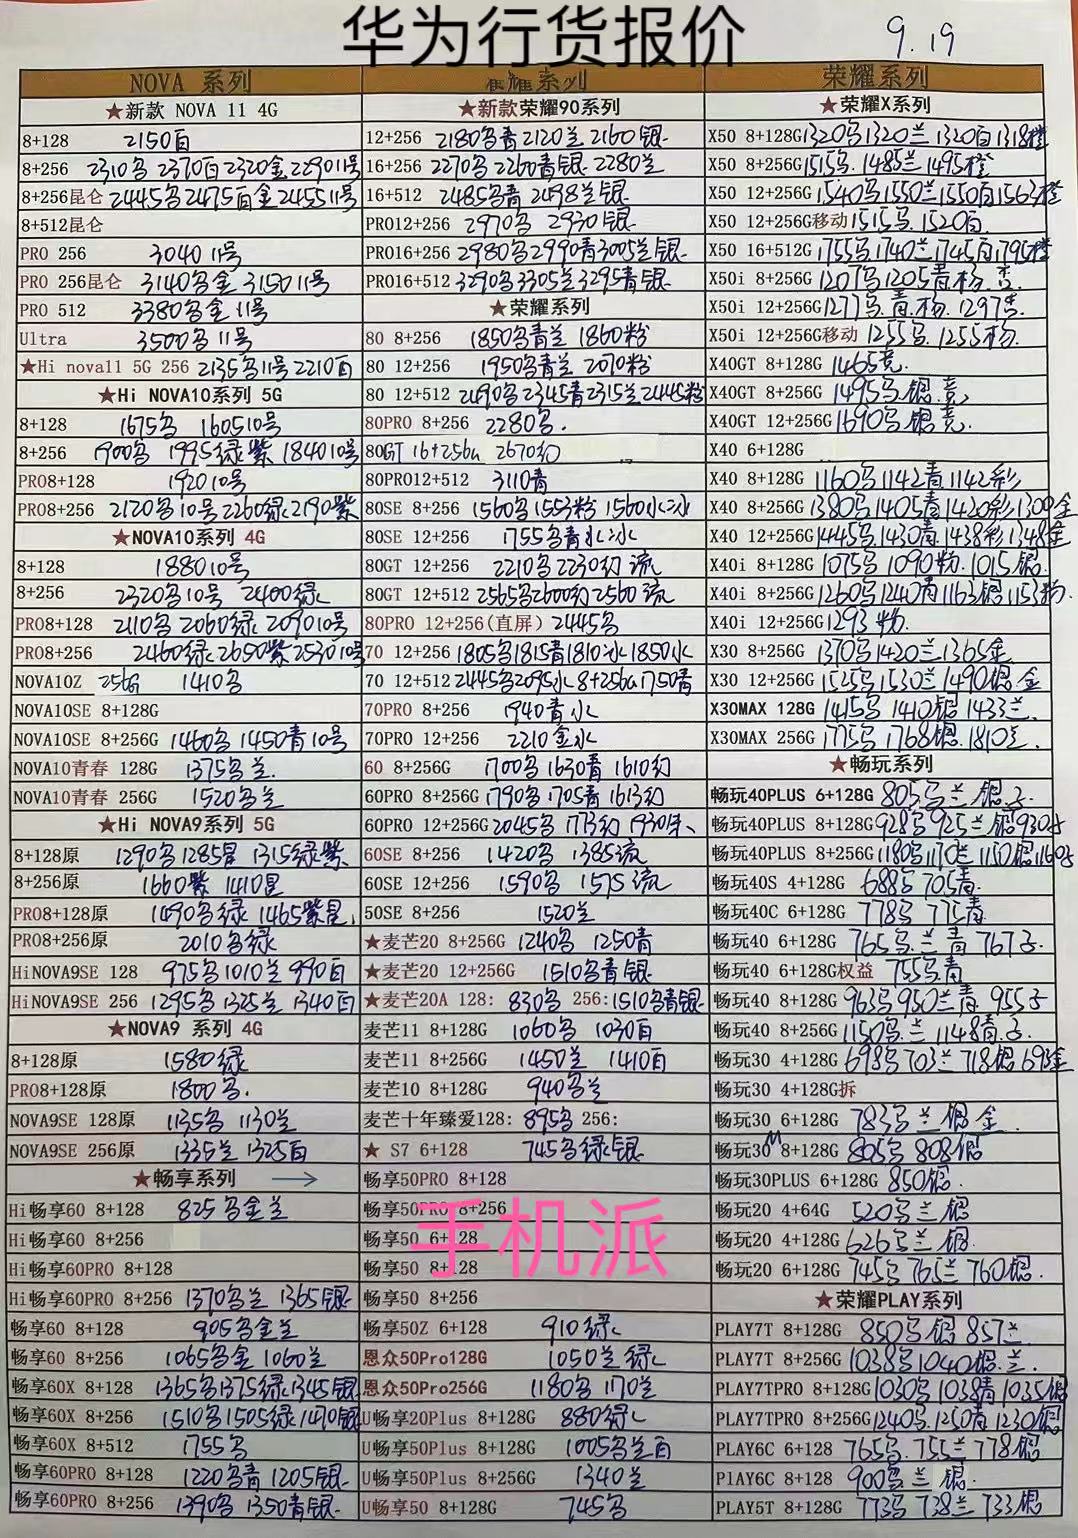 华为行货报价
9.19
NOVA 系列
★新款 NOVA 11 4G
8+128 2150白
8+256 2310黑 2370白 2320金 2290 11号
8+256昆仑 2445黑 2475白金 2455 11号
8+512昆仑
PRO 256 3040 11号
PRO 256昆仑 3140黑金 3150 11号
PRO 512 3380黑金 11号
Ultra 3500黑 11号
★Hi nova11 5G 256 2135黑 11号 2210白
★Hi NOVA10系列 5G
8+128 1675黑 1605 10号
8+256 1900黑 1995绿紫 1840 10号
PRO8+128 1920 10号
PRO8+256 2120黑 10号 2260绿 2190紫
★NOVA10系列 4G
8+128 1880 10号
8+256 2320黑 10号 2400绿
PRO8+128 2110黑 2060绿 2090 10号
PRO8+256 2460绿 2650紫 2530 10号
NOVA10Z 256G 1410黑
NOVA10SE 8+128G
NOVA10SE 8+256G 1460黑 1450青 10号
NOVA10青春 128G 1375黑兰
NOVA10青春 256G 1520黑兰
★Hi NOVA9系列 5G
8+128原 1290黑 1285星 1315绿紫
8+256原 1660紫 1410星
PRO8+128原 1490黑绿 1465紫星
PRO8+256原 2010黑绿
HiNOVA9SE 128 975黑 1010兰 990白
HiNOVA9SE 256 1295黑 1325兰 1340白
★NOVA9 系列 4G
8+128原 1580绿
PRO8+128原 1800黑.
NOVA9SE 128原 1135黑 1130兰
NOVA9SE 256原 1335兰 1325白
★畅享系列 →
Hi畅享60 8+128 825黑金兰
Hi畅享60 8+256
Hi畅享60PRO 8+128
Hi畅享60PRO 8+256 1370黑兰 1365银
畅享60 8+128 905黑金兰
畅享60 8+256 1065黑金 1060兰
畅享60X 8+128 1365黑 1375绿 1345银
畅享60X 8+256 1510黑 1505绿 1470银
畅享60X 8+512 1755黑
畅享60PRO 8+128 1220黑青 1205银
畅享60PRO 8+256 1390黑 1350青银
系列
★新款荣耀90系列
12+256 2180黑青 2120兰 2160银
16+256 2270黑 2260青银 2280兰
16+512 2485黑青 2498兰银
PRO12+256 2970黑 2930银
PRO16+256 2980黑 2990青 3005兰银
PRO16+512 3290黑 3305兰 3295青银
★荣耀系列
80 8+256 1850黑青兰 1860粉
80 12+256 1950黑青兰 2070粉
80 12+512 2490黑 2345青 2315兰 2445粉
80PRO 8+256 2280黑.
80GT 16+256G 2670幻
80PRO12+512 3110青
80SE 8+256 1560黑 1553粉 1560水冰
80SE 12+256 1755黑青水冰
80GT 12+256 2210黑 2230幻 流
80GT 12+512 2565黑 2600幻 2560 流
80PRO 12+256(直屏) 2445黑
70 12+256 1805黑 1815青 1810冰 1850水
70 12+512 2445黑 2095水 8+256G 1750青
70PRO 8+256 1940青水
70PRO 12+256 2210金水
60 8+256G 1700黑 1630青 1610幻
60PRO 8+256G 1790黑 1705青 1613幻
60PRO 12+256G 2045黑 1773幻 1930朱
60SE 8+256 1420黑 1385流
60SE 12+256 1590黑 1575流
50SE 8+256 1520兰
★麦芒20 8+256G 1240黑 1250青
★麦芒20 12+256G 1510黑青银
★麦芒20A 128: 830黑 256:1510黑青银
麦芒11 8+128G 1060黑 1030白
麦芒11 8+256G 1450兰 1410白
麦芒10 8+128G 940黑兰
麦芒十年臻爱128: 895黑 256:
★ S7 6+128 745黑绿银
畅享50PRO 8+128
畅享50PRO 8+256
畅享50 6+128
畅享50 8+128
手机派
畅享50 8+256
畅享50Z 6+128 910绿
恩众50Pro128G 1050兰 绿
恩众50Pro256G 1180黑 1170兰
U畅享20Plus 8+128G 880绿
U畅享50Plus 8+128G 1005黑兰白
U畅享50Plus 8+256G 1340兰
U畅享50 8+128G 745黑
荣耀系列
★荣耀X系列
X50 8+128G 1320黑 1320兰 1320白 1318橙
X50 8+256G 1515黑 1485兰 1495橙
X50 12+256G 1540黑 1550兰 1550白 1563橙
X50 12+256G移动 1515黑. 1520白.
X50 16+512G 1755黑 1740兰 1745白 1795橙
X50i 8+256G 1207黑 1205青 粉. 杏.
X50i 12+256G 1277黑. 青. 粉. 1297杏.
X50i 12+256G移动 1255黑. 1255粉.
X40GT 8+128G 1465竞.
X40GT 8+256G 1495黑. 银. 竞
X40GT 12+256G 1690黑 银 竞.
X40 6+128G
X40 8+128G 1160黑 1142青 1142彩
X40 8+256G 1380黑 1405青 1420彩 1300金
X40 12+256G 1445黑 1430青 1438彩 1348金
X40i 8+128G 1075黑 1090粉. 1015银.
X40i 8+256G 1260黑 1240青 1163银 1153粉.
X40i 12+256G 1293粉.
X30 8+256G 1370黑 1420兰 1365金
X30 12+256G 1525黑 1530兰 1490银 金
X30MAX 128G 1415黑 1410银 1433兰.
X30MAX 256G 1775黑 1768银. 1810兰.
★畅玩系列
畅玩40PLUS 6+128G 805黑 兰 银. 子.
畅玩40PLUS 8+128G 928黑 925兰 银 930子
畅玩40PLUS 8+256G 1180黑 1170兰 1150银 1160子
畅玩40S 4+128G 688黑 705青.
畅玩40C 6+128G 778黑 775青
畅玩40 6+128G 765黑. 兰 青 767子.
畅玩40 6+128G权益 755黑 青
畅玩40 8+128G 963黑 950兰 青 955子
畅玩40 8+256G 1150黑. 兰 1148青. 子.
畅玩30 4+128G 698黑 703兰 718银 693金
畅玩30 4+128G拆
畅玩30 6+128G 783黑 兰 银 金.
畅玩30M 8+128G 805黑 808银
畅玩30PLUS 6+128G 850银.
畅玩20 4+64G 520黑 兰 银
畅玩20 4+128G 626黑 兰 银.
畅玩20 6+128G 745黑 765兰 760银.
★荣耀PLAY系列
PLAY7T 8+128G 850黑 银 857兰
PLAY7T 8+256G 1038黑 1040银. 兰.
PLAY7TPRO 8+128G 1030黑 1038青 1035银
PLAY7TPRO 8+256G 1240黑. 1250青 1230银
PLAY6C 6+128 765黑. 755兰 778银
PLAY6C 8+128 900黑 兰 银.
PLAY5T 8+128G 773黑 738兰 733银